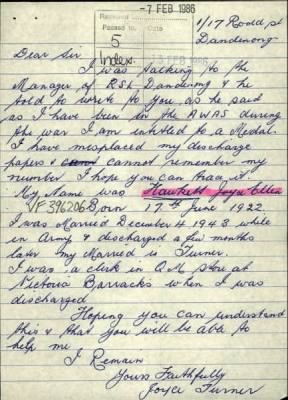 -7 FEB 1986
Received
Passed to Date
5
Index.
3 FEB 1986
1/17 Rodd st
Dandenong
Dear Sir
I was talking to the
Manager of RSL Dandenong & he
told to write to you as he said
as I have been in the AWAS during
the war I am entitled to a Medal.
I have misplaced my discharge
papers & cannot remember my
number I hope you can trace it!
My Name was Hawkett Joyce Ellen
VF396206 Born 17th June 1922
I was Married December 4 1943 while
in Army & discharged a few months
later my Married is Turner.
I was a clerk in QM store at
Victoria Barracks when I was
discharged
Hoping you can understand
this & that you will be able to
help me
I Remain
Yours Faithfully
Joyce Turner